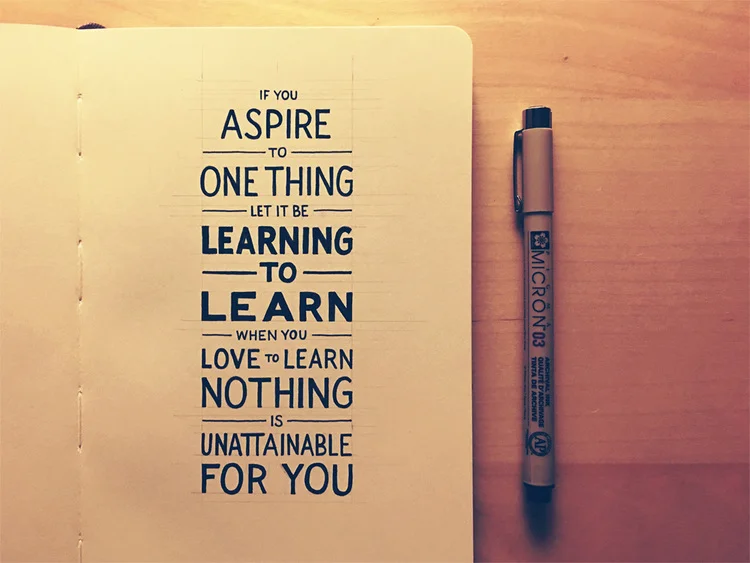 IF YOU
ASPIRE
TO
ONE THING
LET IT BE
LEARNING
TO
LEARN
WHEN YOU
LOVE TO LEARN
NOTHING
IS
UNATTAINABLE
FOR YOU
MICRON 03
ARCHIVAL INK
QUALITÉ D'ARCHIVAGE
TINTA DE ARCHIVO
AP